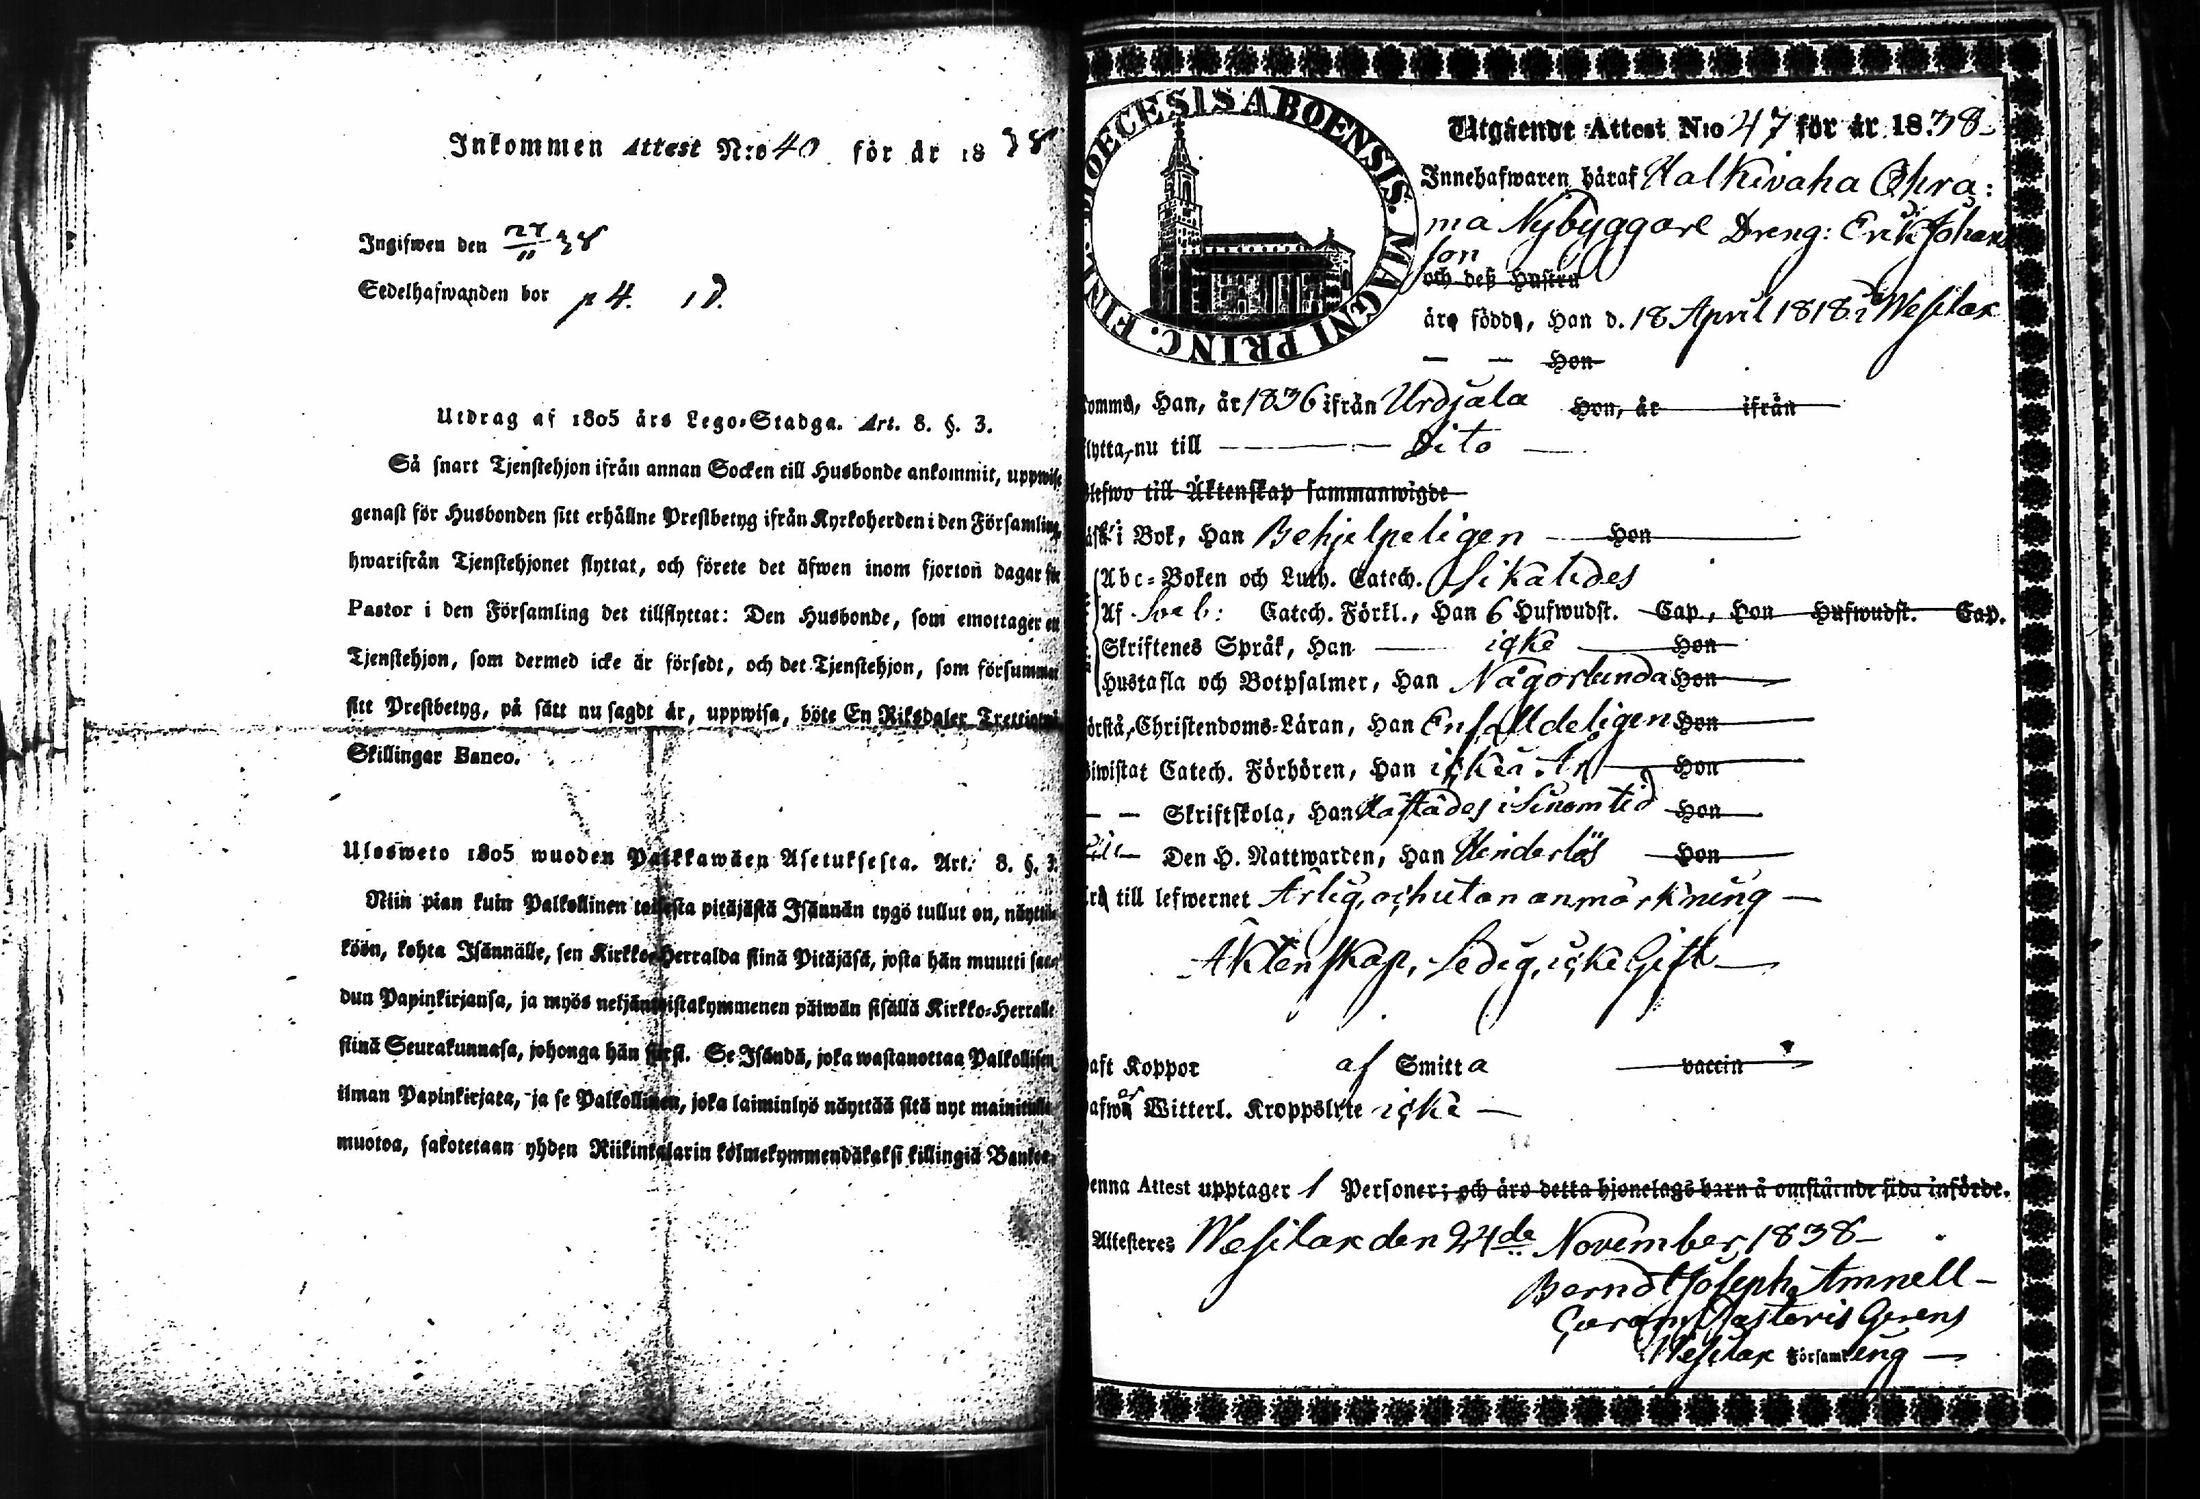 Inkommen Attest N:o 40 för år 1838
Ingifwen den 27/11 38
Sedelhafwanden bor p 4.
Utdrag af 1805 års Lego-Stadga. Art. 8. §. 3.
Så snart Tjenstehjon ifrån annan Socken till Husbonde ankommit, uppwise
genast för Husbonden sitt erhållne Prestbetyg ifrån Kyrkoherden i den Församling,
hwarifrån Tjenstehjonet flyttat, och förete det äfwen inom fjorton dagar för
Pastor i den Församling det tillflyttat: Den Husbonde, som emottager ett
Tjenstehjon, som dermed icke är försedt, och det Tjenstehjon, som försummar
sitt Prestbetyg, på sätt nu sagdt är, uppwisa, böte En Riksdaler Trettiotwå
Skillingar Banco.
Ulosweto 1805 wuoden Palkkawäen Asetuksesta. Art. 8. §. 3.
Niin pian kuin Palkollinen toisesta pitäjästä Isännän tygö tullut on, näyttä-
köön, kohta Isännälle, sen Kirkko-Herralda siinä Pitäjäsä, josta hän muutti saa-
dun Papinkirjansa, ja myös neljäntoistakymmenen päiwän sisällä Kirkko-Herralle
siinä Seurakunnasa, johonga hän siirsi. Se Isändä, joka wastanottaa Palkollisen
ilman Papinkirjata, ja se Palkollinen, joka laiminlyö näyttää sitä nyt mainitulla
muotoa, sakotetaan yhden Riikintalarin kolmekymmendäkaksi killingiä Bankos.
DIOECESIS ABOENSIS. MAGNI PRINC. FINL.
Utgående Attest N:o 47 för år 1838
Innehafwaren häraf Halkivaha Ohra:
ma Nybyggare Dreng: Erik Johans
son
och deß Hustru
äro födde, Han d. 18 April 1818 i Wesilax
— — Hon
komme, Han, år 1836 ifrån Urdjala Hon, år ifrån
flytta, nu till Dito
Blefwo till Äktenskap sammanwigde
läsa i Bok, Han Behjelpeligen Hon
Abc-Boken och Luth. Catech. Likaledes
Af Sveb: Catech. Förkl., Han 6 Hufwudst. Cap., Hon Hufwudst. Cap.
Skriftenes Språk, Han icke Hon
Hustafla och Botpsalmer, Han Någorlunda Hon
förstå, Christendoms-Läran, Han Enfalldeligen Hon
biwistat Catech. Förhören, Han icke i år Hon
— — Skriftskola, Han i Sinom tid Hon
Den H. Nattwarden, Han Hinderlös Hon
äro till lefwernet Ärlig, och utan anmärkning
Äktenskap, Ledig, icke Gift
haft Koppor af Smitta vaccin
hafwa Witterl. Kroppslyte icke
Denna Attest upptager 1 Personer; och äro detta hjonelags barn å omstående sida införde.
Attesteres Wesilax den 24de November 1838
Berndt Joseph Amnell
Pastoris Gerens
Wesilax Församling